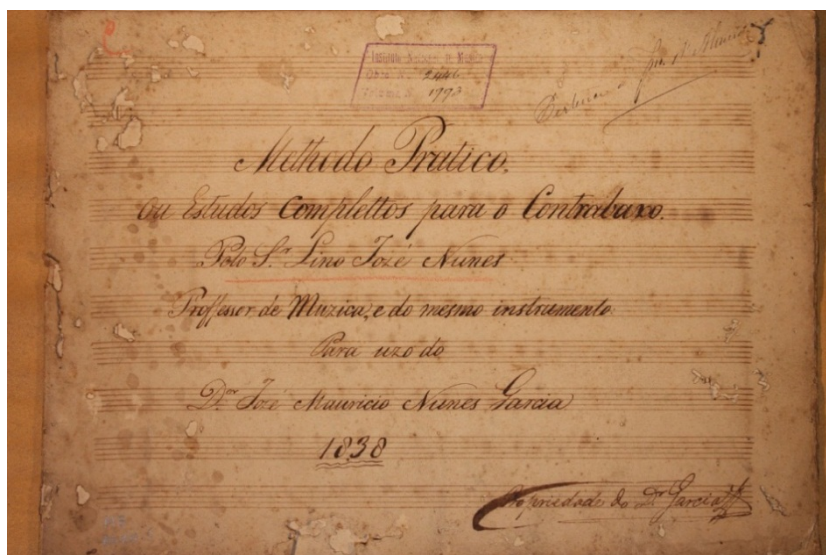 Instituto
Obra N. 2446
Volume N. 1793
Methodo Pratico.
Ou Estudos Complettos para o Contrabaxo.
Pelo Sr. Lino Jozé Nunes
Proffessor de Muzica, e do mesmo instrumento
Para uzo do
Dor. Jozé Mauricio Nunes Garcia
1838
Propriedade do Dr. Garcia